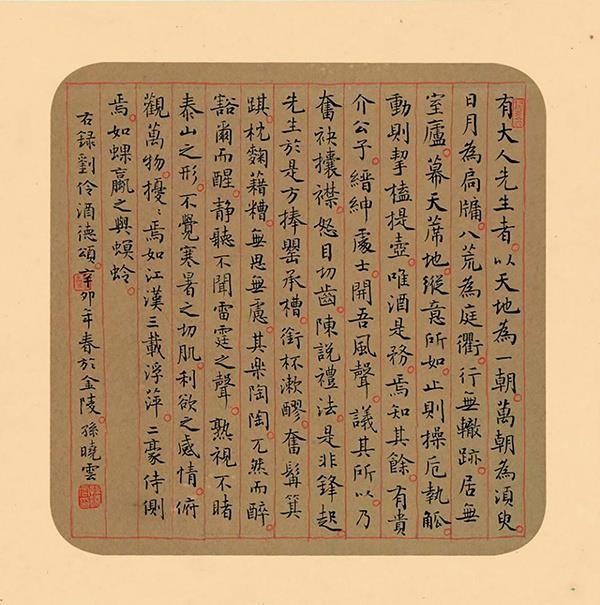 有大人先生者。以天地為一朝。萬朝為湏臾。
日月為扃牖。八荒為庭衢。行無轍跡。居無
室廬。幕天蓆地。縱意所如。止則操卮執觚。
動則挈榼提壺。唯酒是務。焉知其餘。有貴
介公子。縉紳處士。開吾風聲。議其所以。乃
奮袂攘襟。怒目切齒。陳說禮法。是非鋒起。
先生於是方捧罌承槽。銜杯漱醪。奮髯箕
踑。枕麴藉糟。無思無慮。其樂陶陶。兀然而醉。
豁爾而醒。靜聽不聞雷霆之聲。熟視不睹
泰山之形。不覺寒暑之切肌。利欲之感情。俯
觀萬物。擾〻焉如江漢三載浮萍。二豪侍側
焉。如蜾蠃之與螟蛉。
右録劉伶酒德頌。辛卯年春於金陵 孫曉雲